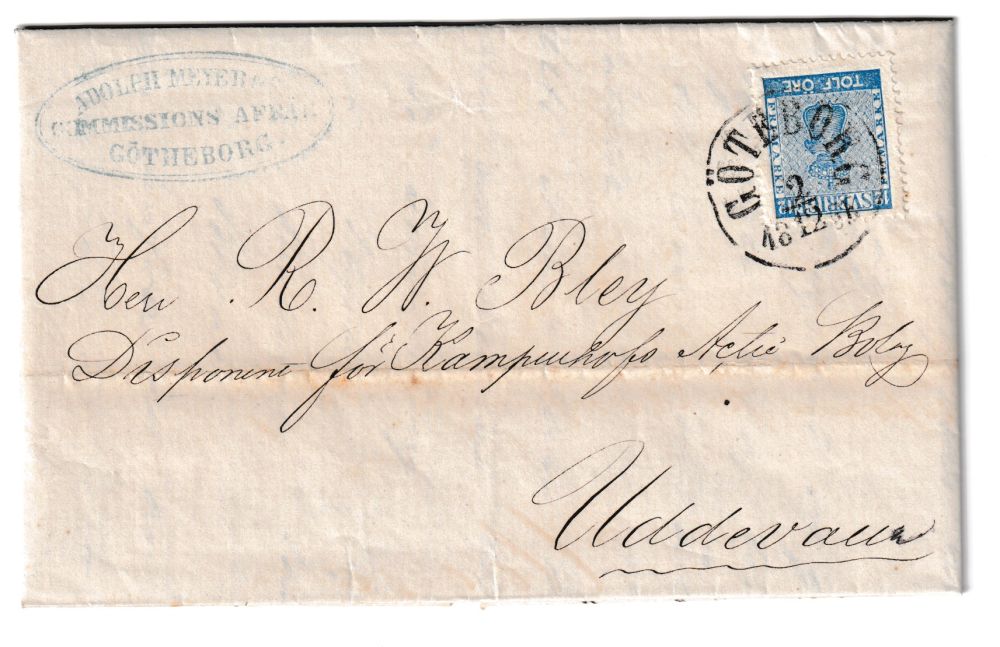 ADOLPH MEYER
COMMISSIONS AFFÄR
GÖTHEBORG.
TOLF ÖRE
FRIMÄRKE
SVERIGE
GÖTEBORG
2
12
Herr R. W. Bley
Disponent för Kampenhofs Actie Bolag
Uddevalla